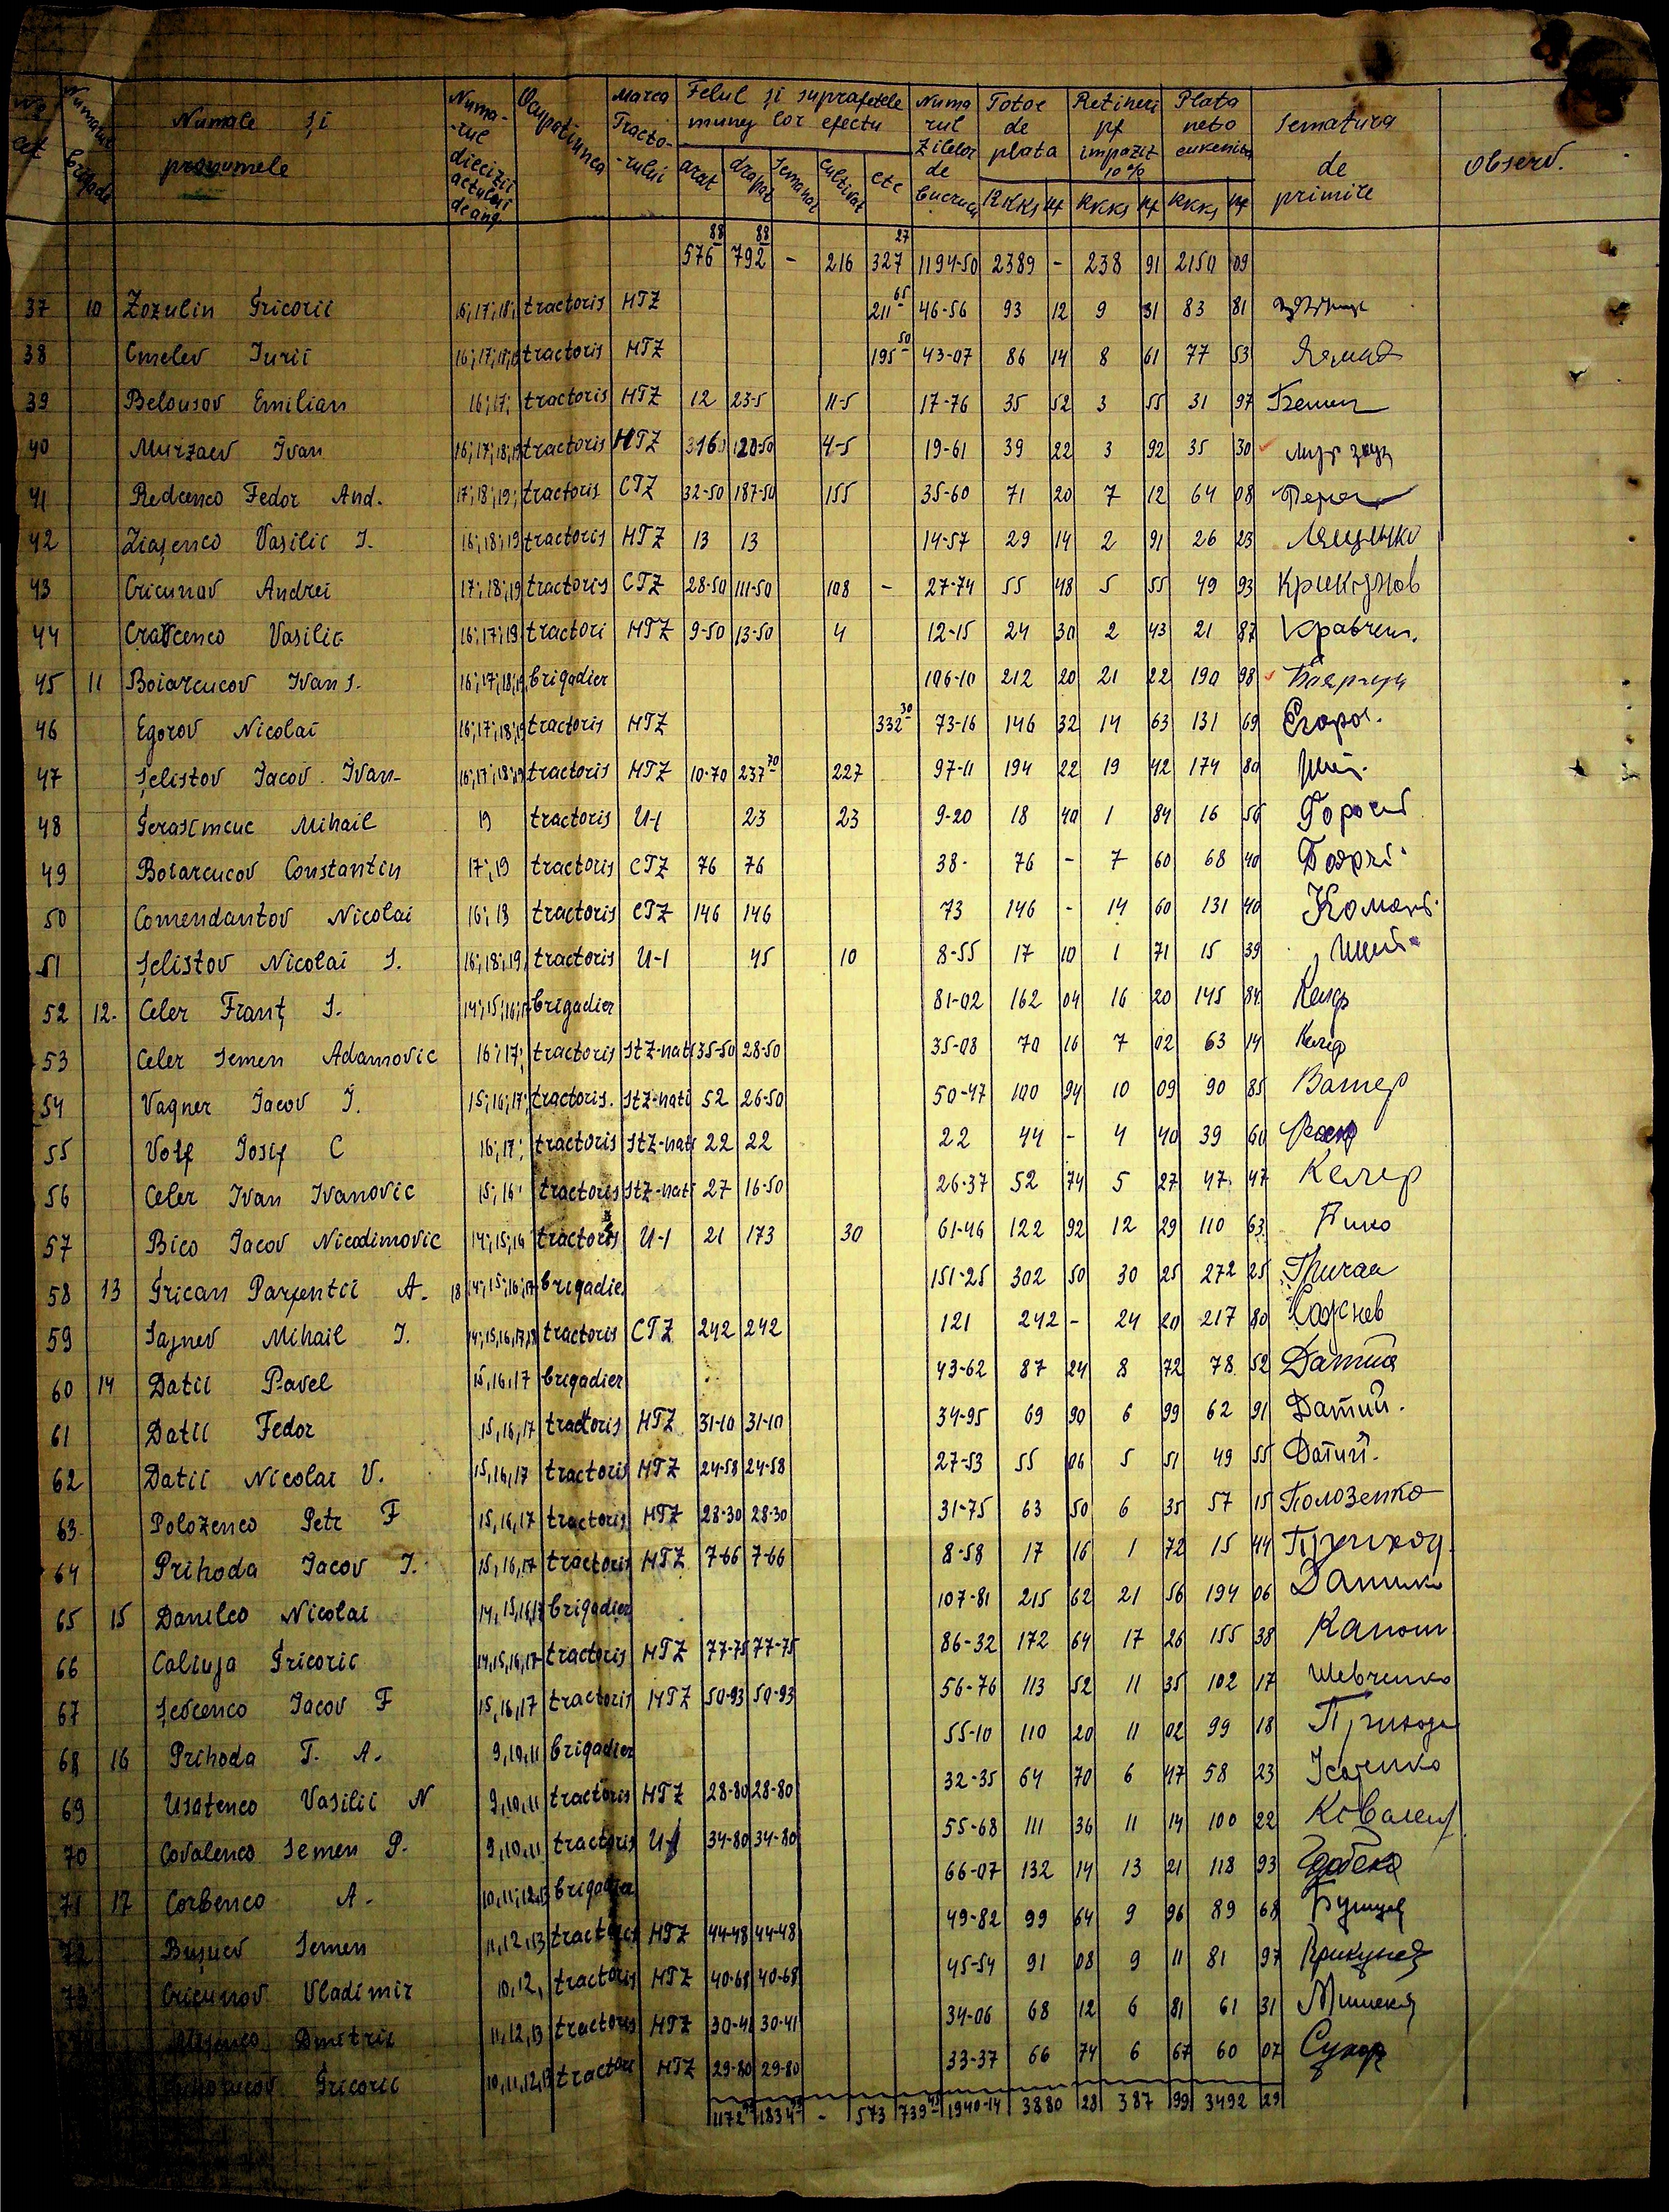 No crt Numarul brigade Numale și pronumele Numarul diecizii actului de ang Ocupațiunea Marca Tractorului Felul și suprafetele muncy lor efectu Numarul Zilelor de Lucru Total de plata Retineri pf impozit 10% Plata neto Semătura de primire Observ.
arat drapat Semanat cultivat etc RKKs pf RKKs pf RKKs pf
576 88 792 88 - 216 327 27 1194-50 2389 - 238 91 2150 09
37 10 Zozulin Gricorii 16,17,18, tractoris HTZ 211 65 46-56 93 12 9 31 83 81
38 Emelev Iurii 16,17,18,19 tractoris HTZ 195 50 43-07 86 14 8 61 77 53
39 Belousov Emilian 16;17; tractoris HTZ 12 23-5 11-5 17-76 35 52 3 55 31 97
40 Murzaev Ivan 16,17,18,19 tractoris HTZ 120-50 4-5 19-61 39 22 3 92 35 30
41 Redcenco Fedor And. 17;18;19; tractoris CTZ 32-50 187-50 155 35-60 71 20 7 12 64 08
42 Liașenco Vasilie I. 16;18;19 tractoris HTZ 13 13 14-57 29 14 2 91 26 23 Лященко
43 Cricunov Andrei 17;18;19 tractoris CTZ 28-50 111-50 108 - 27-74 55 48 5 55 49 93 Крикунов
44 Cravcenco Vasilie 16;17;19 tractori HTZ 9-50 13-50 4 12-15 24 30 2 43 21 87 Кравчен.
45 11 Boiarcucov Ivan I. 16;17;18,19 brigadier 106-10 212 20 21 22 190 98 Бояркун
46 Egorov Nicolai 16;17;18;19 tractoris HTZ 332 30 73-16 146 32 14 63 131 69 Егоров.
47 Șelistov Iacov Ivan- 16;17;18;19 tractoris HTZ 10-70 237 70 227 97-11 194 22 19 42 174 80 Шел.
48 Gerasimciuc Mihail 19 tractoris U-1 23 23 9-20 18 40 1 84 16 56
49 Boiarcucov Constantin 17;19 tractoris CTZ 76 76 38- 76 - 7 60 68 40
50 Comendantov Nicolai 16;18 tractoris CTZ 146 146 73 146 - 14 60 131 40 Коменд.
51 Șelistov Nicolai I. 16;18;19, tractoris U-1 45 10 8-55 17 10 1 71 15 39
52 12. Celer Franț I. 14;15;16;17 brigadier 81-02 162 04 16 20 145 84 Келер
53 Celer Semen Adamovic 16;17; tractoris StZ-nati 35-50 28-50 35-08 70 16 7 02 63 14 Келер
54 Vagner Iacov I. 15;16;17; tractoris. StZ-nati 52 26-50 50-47 100 94 10 09 90 85 Вагнер
55 Volf Iosif C 16;17; tractoris StZ-nati 22 22 22 44 - 4 40 39 60
56 Celer Ivan Ivanovic 15;16; tractoris StZ-nati 27 16-50 26-37 52 74 5 27 47 47 Келер
57 Bico Iacov Nicodimovic 14;15;16 tractoris U-1 21 173 30 61-46 122 92 12 29 110 63 Бико
58 13 Grican Parfentii A. 18 14;15;16;17 brigadier 151-25 302 50 30 25 272 25 Грикан
59 Sajnev Mihail I. 14,15,16,17,18 tractoris CTZ 242 242 121 242 - 24 20 217 80 Сажнев
60 14 Datii Pavel 15,16,17 brigadier 43-62 87 24 8 72 78 52 Датий
61 Datii Fedor 15,16,17 tractoris HTZ 31-10 31-10 34-95 69 90 6 99 62 91 Датий.
62 Datii Nicolai V. 15,16,17 tractoris HTZ 24-58 24-58 27-53 55 06 5 51 49 55 Датий.
63. Polozenco Petr F 15,16,17 tractoris HTZ 28-30 28-30 31-75 63 50 6 35 57 15 Полозенко
64 Prihoda Iacov I. 15,16,17 tractoris HTZ 7-66 7-66 8-58 17 16 1 72 15 44 Приход.
65 15 Danilco Nicolai 14,15,16,17 brigadier 107-81 215 62 21 56 194 06 Данилко
66 Caliuja Gricorie 14,15,16,17 tractoris HTZ 77-75 77-75 86-32 172 64 17 26 155 38
67 Șevcenco Iacov F 15,16,17 tractoris HTZ 50-93 50-93 56-76 113 52 11 35 102 17 Шевченко
68 16 Prihoda T. A. 9,10,11 brigadier 55-10 110 20 11 02 99 18 Приходa
69 Usatenco Vasilii N 9,10,11 tractoris HTZ 28-80 28-80 32-35 64 70 6 47 58 23
70 Covalenco Semen P. 9,10,11 tractoris U-1 34-80 34-80 55-68 111 36 11 14 100 22 Ковален
71 17 Corbenco A. 10,11,12,13 brigadier 66-07 132 14 13 21 118 93
72 Bușuev Semen 11,12,13 tractoris HTZ 44-48 44-48 49-82 99 64 9 96 89 68 Бушуев
73 Cricunov Vladimir 10,12, tractoris HTZ 40-68 40-68 45-54 91 08 9 11 81 97 Крикунов
Dmitrii 11,12,13 tractoris HTZ 30-41 30-41 34-06 68 12 6 81 61 31
Gricorii 10,11,12,13 tractoris HTZ 29-80 29-80 33-37 66 74 6 67 60 07 Сухор
1172 1834 - 573 739 1940-14 3880 28 387 99 3492 29